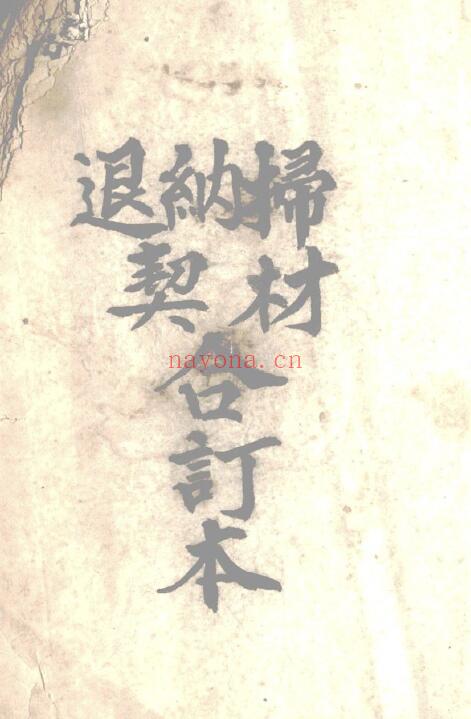 掃材
納退契
合訂本
nayona.cn